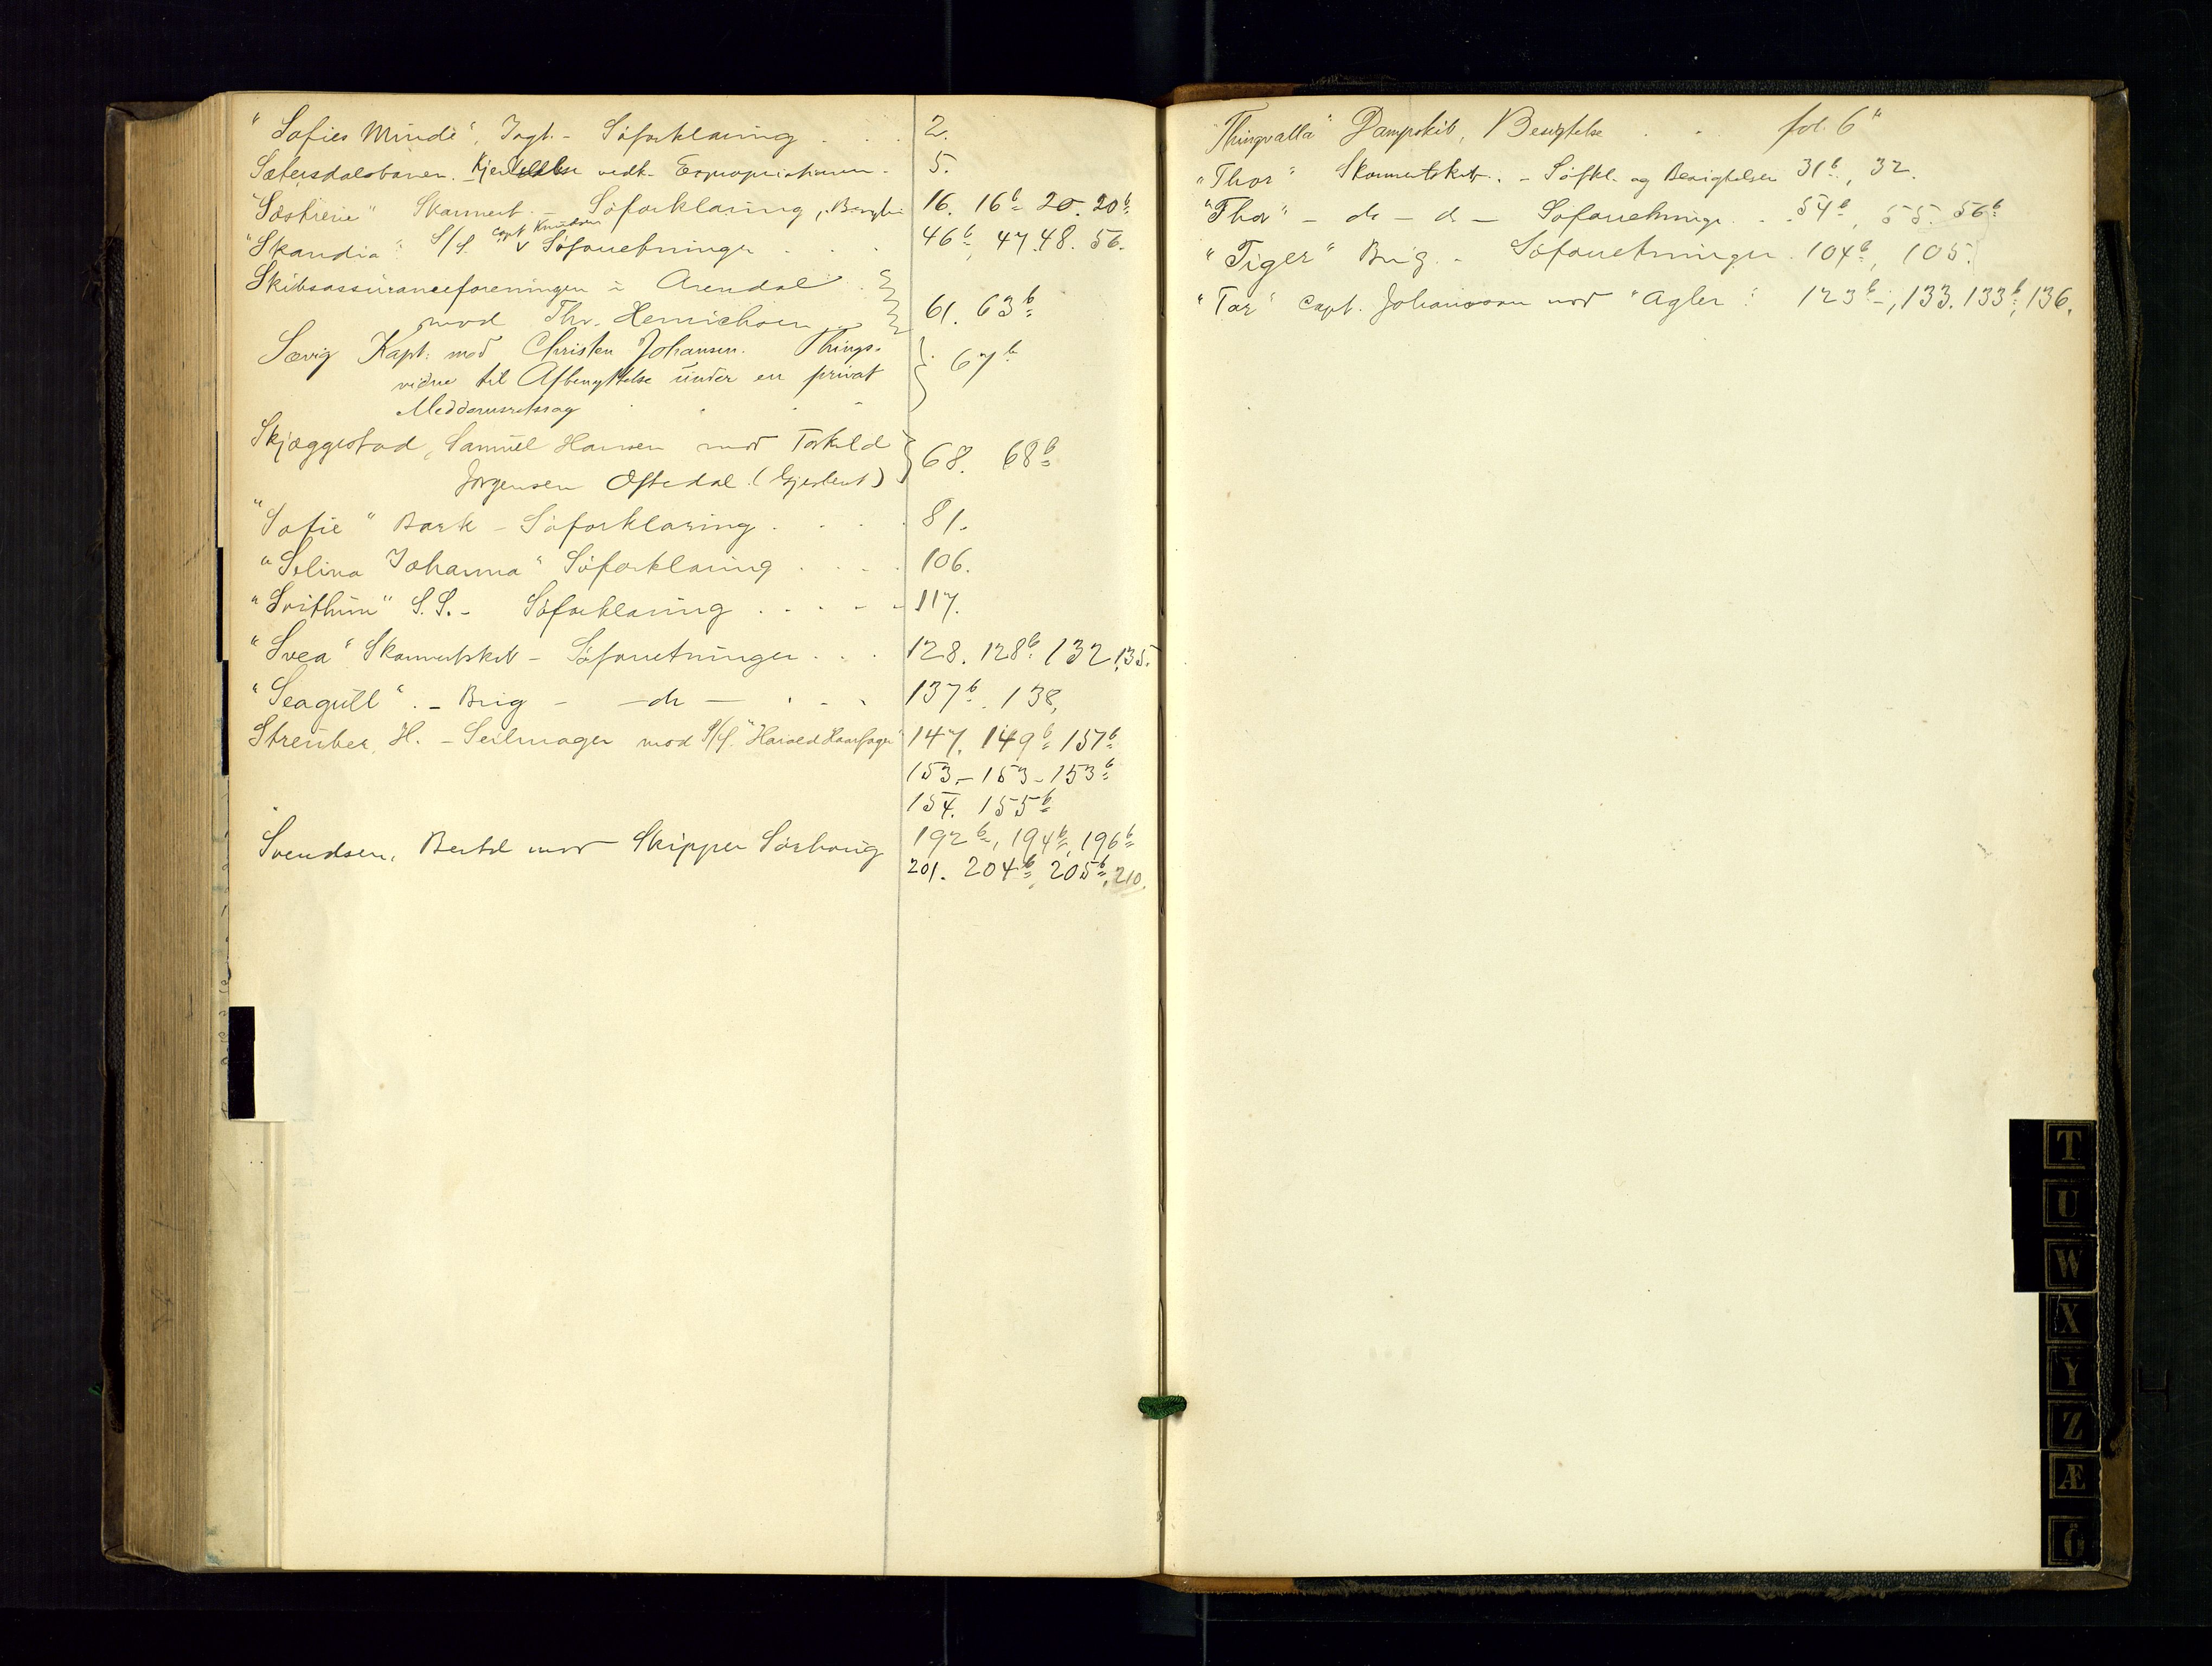 "Sofies Minde", Jagt. - Söforklaring . . . 2.
Sætersdalsbanen. vedk. Expropriationen. 5.
"Søstrene" Skonnert - Söforklaring, Besigt. 16. 16b 20. 20b
Capt Knudsen
"Skandia" S/S. v Söforretninger . . . 46b, 47. 48. 56.
Skibsassuranceforeningen i Arendal
mod Thv. Henrichsen 61. 63b
Sævig Kapt. mod Christen Johansen. Things-
vidne til Afbenyttelse under en privat 67b
Meddomsretssag
Skjæggestad, Samuel Hansen mod Torkild
Jörgensen Oftedal. (Gjesteret) 68. 68b
"Sofie" Bark - Söforklaring . . . . 81.
"Selina Johanna" Söforklaring . . . . 106.
"Svithun" S.S. - Söforklaring . . . . . 117.
"Svea" Skonnertskib - Söforretninger . . . 128. 128b. 132 135.
"Seagull". - Brig - - do - . . . 137b. 138,
Streuber, H. - Seilmager mod S/S. "Harald Haarfager" 147. 149b 151b
153. - 153 - 153b
154. 155b
Svendsen, Bertel mod Skipper Sörhoug 192b, 194b, 196b
201. 204b, 205b, 210.
"Thingvalla" Dampskib, Besigtelse . . fol. 6"
"Thor" Skonnertskib. - Söfkl. og Besigtelser 31b, 32.
"Thor" - do - do - Söforretninger . . 54b, 55. 56b
"Tiger" Brig. - Söforretninger. 104b, 105.
"Tor" Capt. Johansson mod "Agler": 123b, 133. 133b, 136.
T
U
W
X
Y
Z
Æ
Ö